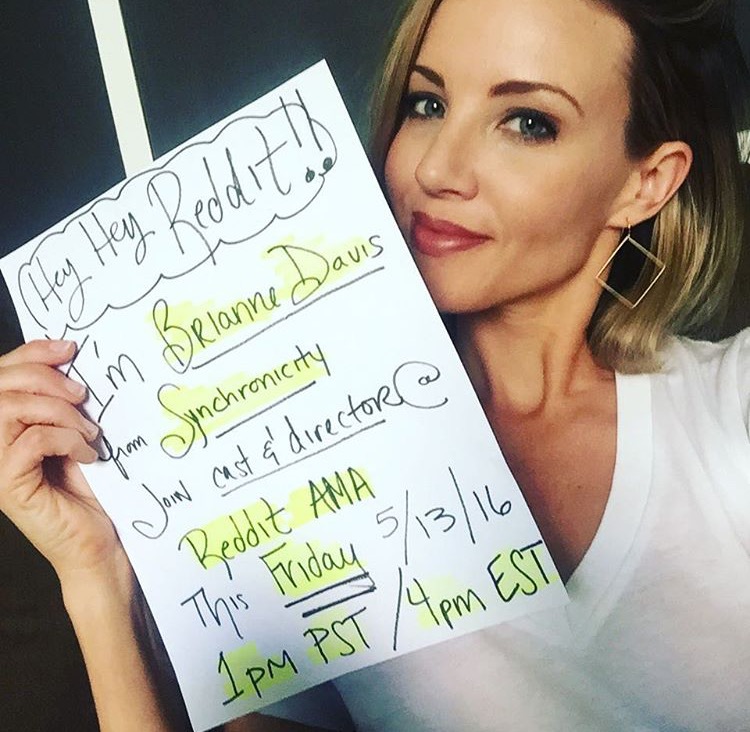 Hey Hey Reddit!!
I'm Brianne Davis
from Synchronicity
Join cast & director @
Reddit AMA
This Friday 5/13/16
1pm PST / 4pm EST